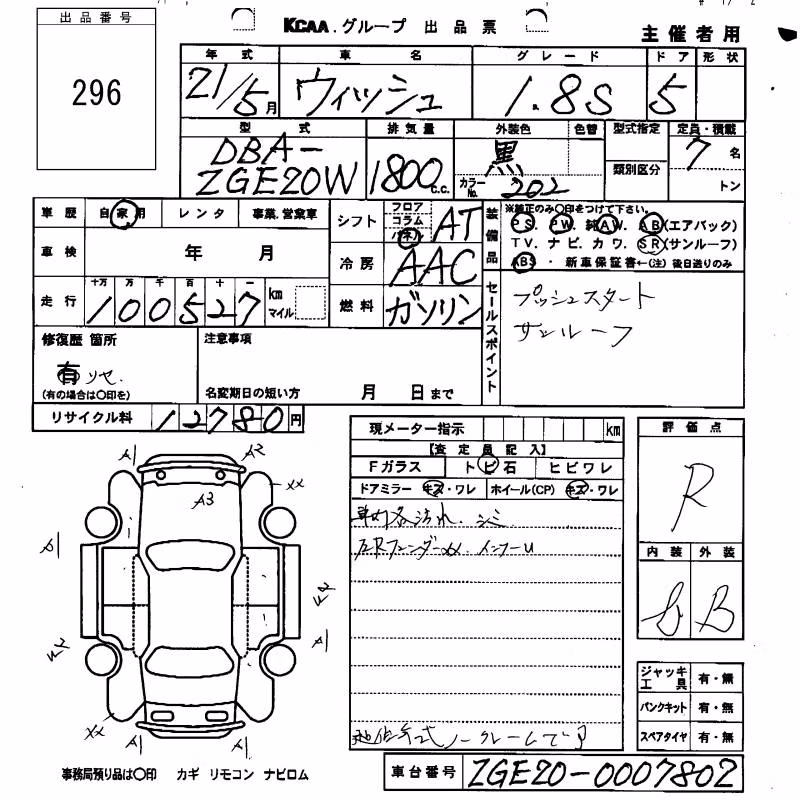 出品番号
296
KCAA.グループ 出品票
主催者用
年式 車名 グレード ドア 形状
21/5月 ウィッシュ 1.8S 5
型式 排気量 外装色 色替 型式指定 定員・積載
DBA-
ZGE20W 1800c.c. 黒 類別区分 7名
カラーNo. 202 トン
車歴 自家用 レンタ 事業.営業車
車検 年 月
走行 十万 万 千 百 十 一
100527 km マイル
シフト フロア コラム パネル AT
冷房 AAC
燃料 ガソリン
装備品
※純正のみ○印をつけて下さい。
PS. PW. 純AW. AB(エアバック)
TV. ナビ. カワ. SR(サンルーフ)
ABS・新車保証書←(注)後日送りのみ
セールスポイント
プッシュスタート
サンルーフ
修復歴 箇所
有 リセ.
(有の場合は○印を)
注意事項
名変期日の短い方 月 日まで
リサイクル料 12780円
現メーター指示 km
【査定員記入】
Fガラス トビ石 ヒビワレ
ドアミラー キズ・ワレ ホイール(CP) キズ・ワレ
シミ
フェンダーXX
ノークレームで
評価点
R
内装 外装
B
ジャッキ工具 有・無
パンクキット 有・無
スペアタイヤ 有・無
A1 A2
A3 XX
A1
A1
XX
事務局預り品は○印 カギ リモコン ナビロム
車台番号 ZGE20-0007802